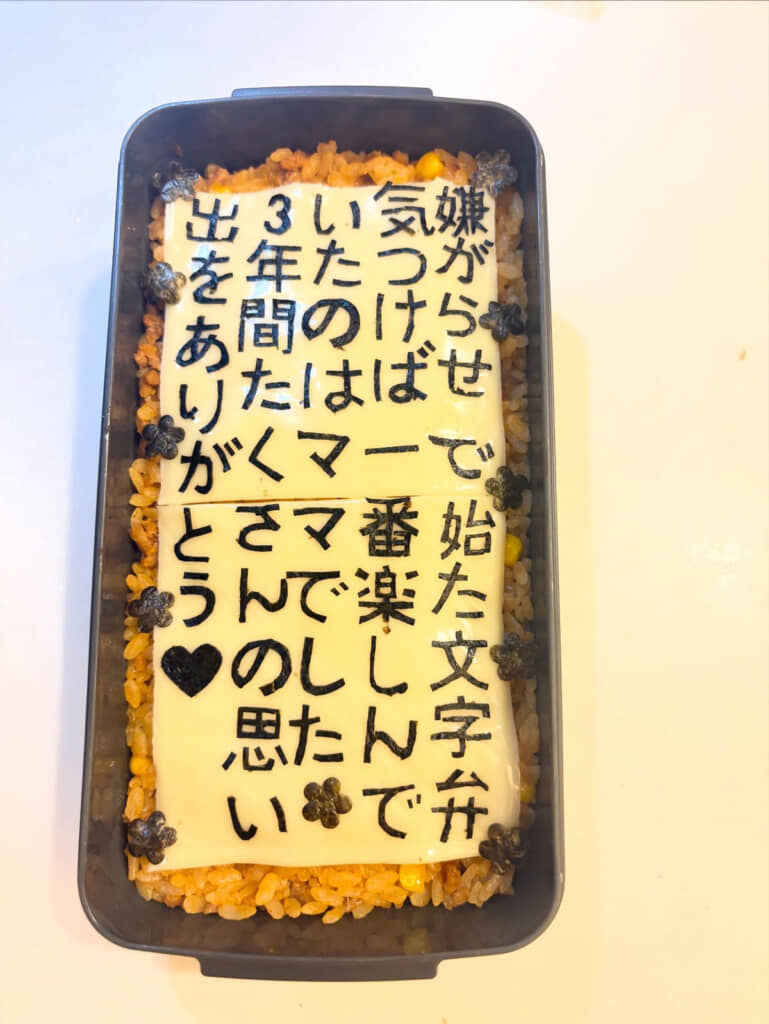 嫌がらせで始た文字弁
気つけば一番楽しんで
いたのはママでした
３年間たくさんの思い
出をありがとう♥